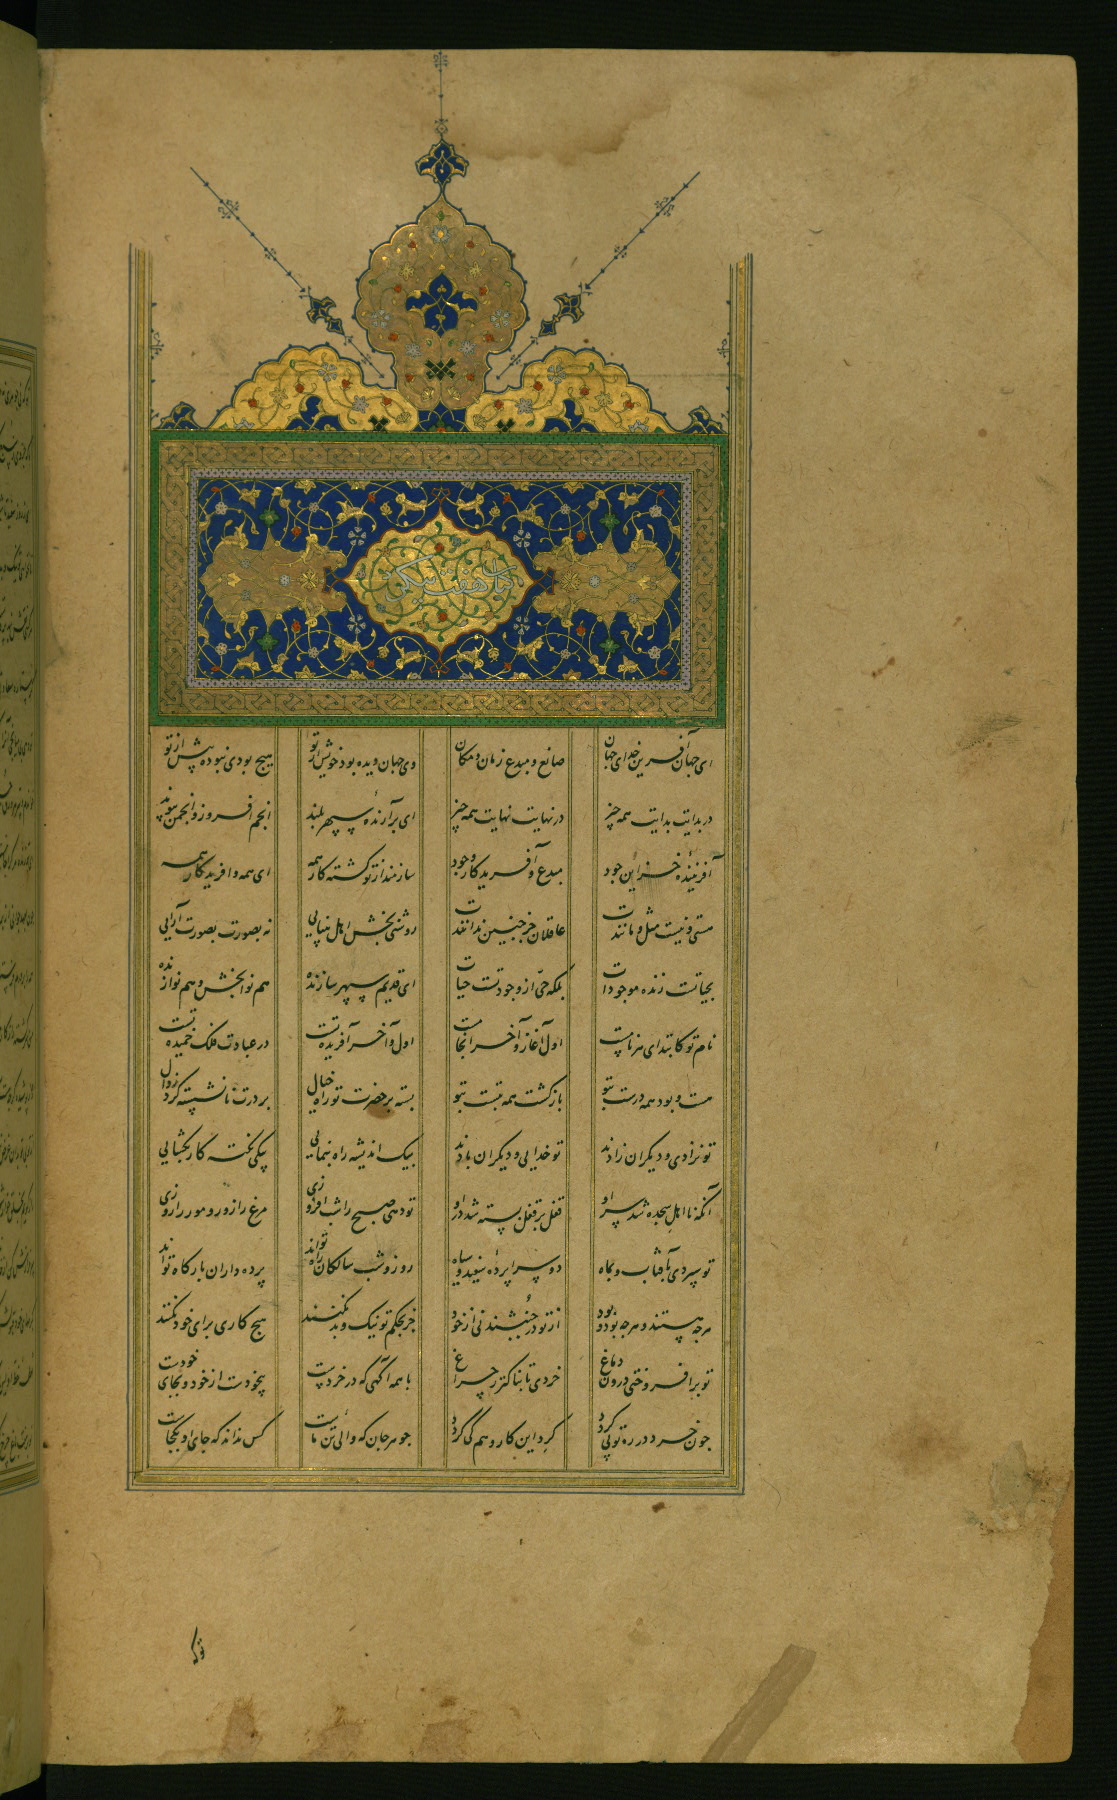 کتاب هفت پیکر
ای جهان آفرین خدای جهان صانع و مبدع زمان و مکان وی جهان دیده بود خویش از تو هیچ بودی نبوده پیش از تو
در بدایت بدایت همه چیز در نهایت نهایت همه چیز ای برآرندهٔ سپهر بلند انجم افروز و انجمن پیوند
آفرینندهٔ خزاین جود مبدع و آفریدکار وجود سازمند از تو کشته کار همه ای همه وافریدکار همه
هستی و نیست مثل و مانندت عاقلان جز چنین ندانندت روشنی بخش اهل بینایی نه بصورت بصورت آرایی
بحیاتست زنده موجودات بلکه حیّ از وجود تست حیات ای قدیم سپهر سازنده هم نوابخش و هم نوازنده
نام تو کابتدای هر نامست اول آغاز و آخر انجامست اول و آخر آفریده تست در عبادت فلک خمیده تست
هست و بود همه درست بتو بازکشت همه بتو بسته بر حضرت تو راه خیال بر درت نانشسته کرد زوال
تو نزادی و دیکران زادند تو خدایی و دیکران بادند بیک اندیشه راه بنمایی بیکی نکته کار بکشایی
آنکه نااهل سجده شد سر او قفل بر قفل بسته شد در او تو دهی صبح را شب افروزی مرغ را زور و مور را روزی
تو سپردی بآفتاب و بماه دو سراپردهٔ سپید و سیاه روز و شب سالکان راه تواند پرده داران بارکاه تواند
هرچه هستند و هرچه بود و بود از تو در جنبشند نی از خود جز بحکم تو نیک و بد نکنند هیچ کاری برای خود نکنند
تو برافروختی درون دماغ خردی تابناکتر ز چراغ با همه آکهی که در خردست بیخودست از خود و بجای خودست
چون خرد در ره تو پی کردد کرد این کار وهم کی کردد جوهر جان که والی تن ماست کس نداند که جای او بکجاست
تو که